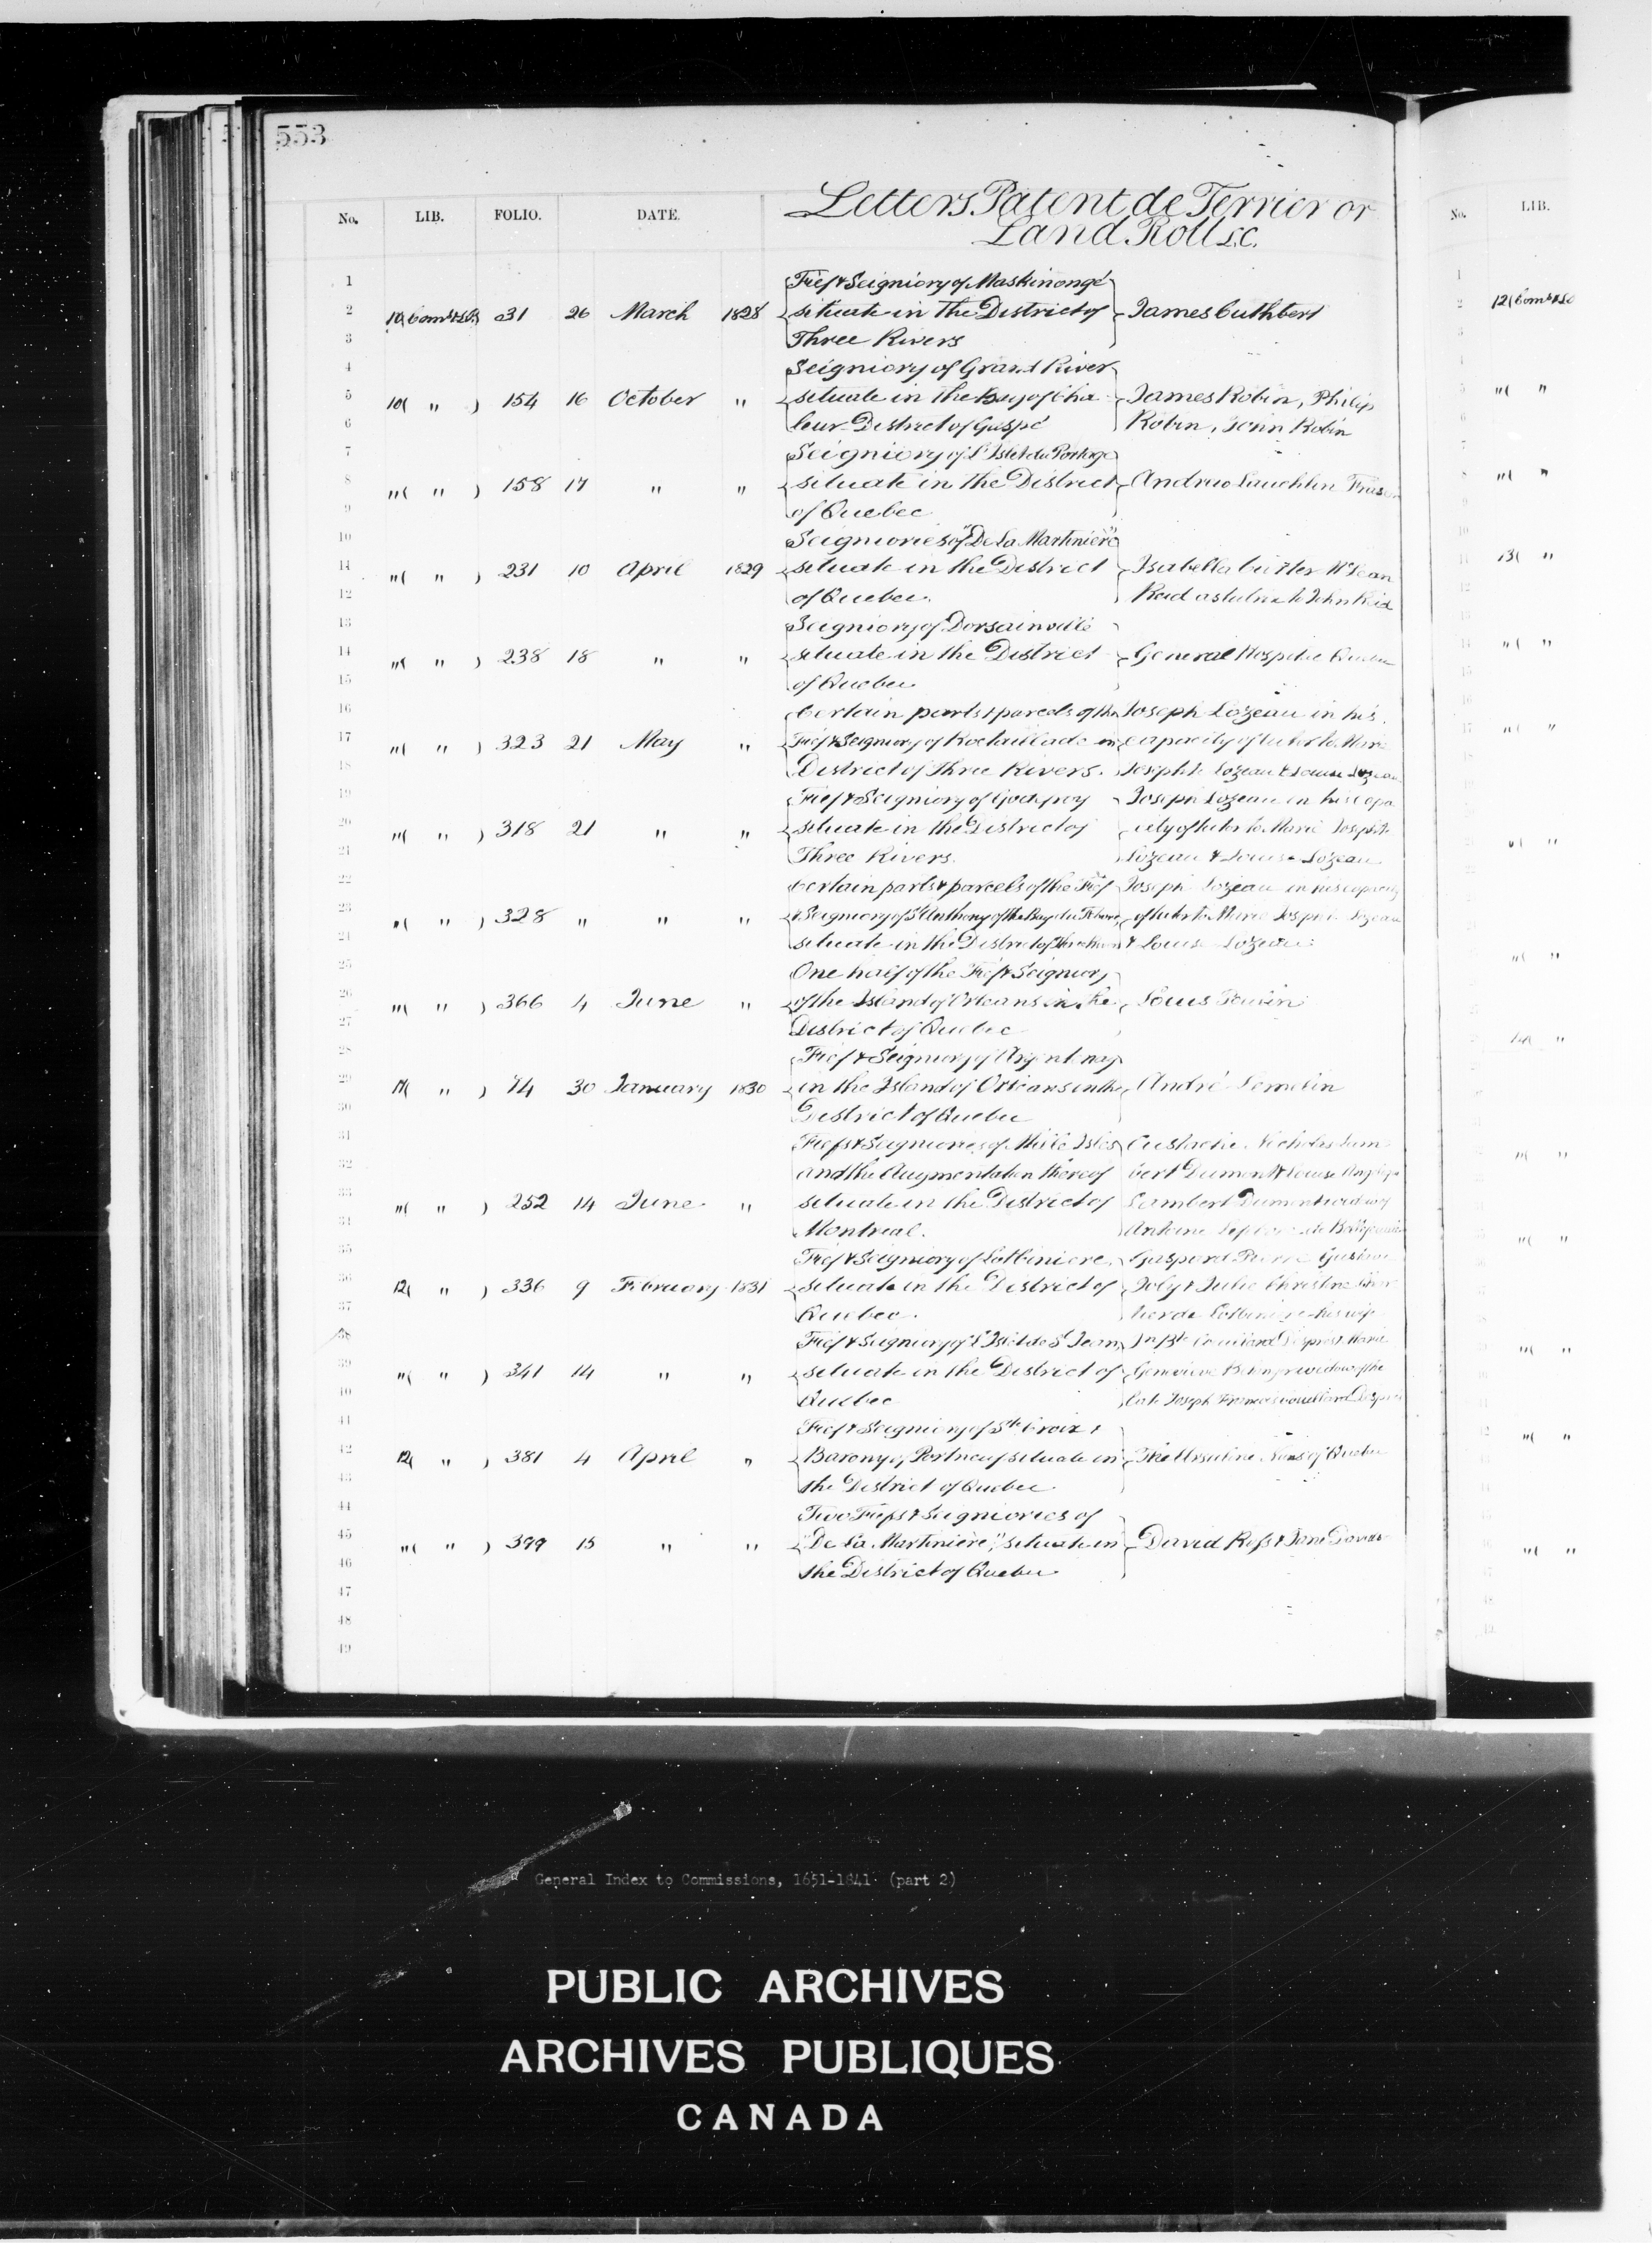 553
No. LIB. FOLIO. DATE. Letters Patent de Terrier or
Land Roll &c.
No. LIB.
1 Fief & Seigniory of Maskinongé
2 10 (Coms & LP) 31 26 March 1828 situate in the District of James Cuthbert
3 Three Rivers
4 Seigniory of Grand River
5 10( " ) 154 16 October " situate in the Bay of Cha James Robin, Philip
6 leur District of Gaspé Robin, John Robin
7 Seigniory of L'Islet du Portage
8 "( " ) 158 17 " " situate in the District Andrew Lauchlin Fraser
9 of Quebec
10 Seigniories of "De La Martinière"
11 "( " ) 231 10 April 1829 situate in the District Isabella McLean
12 of Quebec. Reid as tutrix to John Reid
13 Seigniory of Dorsainville
14 "( " ) 238 18 " " situate in the District General Hospital Quebec
15 of Quebec
16 Certain parts & parcels of the Joseph Lozeau in his
17 "( " ) 323 21 May " Fief & Seigniory of Roctaillade in capacity of tutor to Marie
18 District of Three Rivers. Josephte Lozeau & Louise Lozeau
19 Fief & Seigniory of Godefroy Joseph Lozeau in his capa
20 "( " ) 318 21 " " situate in the District of city of tutor to Marie Josephte
21 Three Rivers. Lozeau & Louise Lozeau
22 Certain parts & parcels of the Fief Joseph Lozeau in his capacity
23 "( " ) 328 " " " & Seigniory of St Anthony of the Bay du Febvre, of tutor to Marie Josephte Lozeau
24 situate in the District of Three Rivers & Louise Lozeau
25 One half of the Fief & Seigniory
26 "( " ) 366 4 June " of the Island of Orleans in the Louis Poulin
27 District of Quebec
28 Fief & Seigniory of Argentenay
29 11( " ) 74 30 January 1830 in the Island of Orleans in the André Lemelin
30 District of Quebec
31 Fiefs & Seigniories of Mille Isles Eustache Nicholas Lam
32 and the Augmentation thereof bert Dumont & Louise Angelique
33 "( " ) 252 14 June " situate in the District of Lambert Dumont widow of
34 Montreal. Antoine de Bellefeuille
35 Fief & Seigniory of Lotbiniere, Gaspard Pierre Gustave
36 12( " ) 336 9 February 1831 situate in the District of Joly & Julie Christine Char
37 Quebec. tier de Lotbiniere his wife
38 Fief & Seigniory of L'Islet de St Jean, Jn Bte Couillard Després & Marie
39 "( " ) 341 14 " " situate in the District of Genevieve widow of the
40 Quebec late Joseph Francois Couillard Després
41 Fief & Seigniory of Ste Croix &
42 12( " ) 381 4 April " Barony of Portneuf situate in The Ursuline Nuns of Quebec
43 the District of Quebec
44 Two Fiefs & Seigniories of
45 "( " ) 399 15 " " "De La Martinière," situate in David Ross & Jane Davidson
46 the District of Quebec
47
48
49
12 (Coms & LP
"( "
"( "
13( "
General Index to Commissions, 1651-1841 (part 2)
PUBLIC ARCHIVES
ARCHIVES PUBLIQUES
CANADA